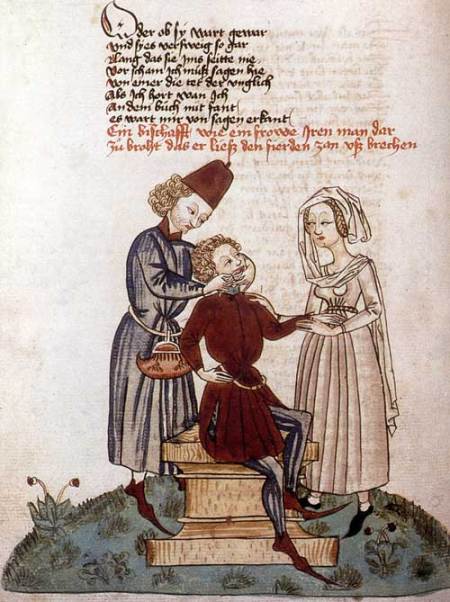 Oder ob sy wart gewar
vnd syes versweig so gar
Lang das sie jms seitte nie
Vor scham ich mu̍st sagen hie
Von einer die tet der vnglich
Als ich hort van ich
An dem bu̍ch mit fant
es wart mir von sagen erkant
Ein bischafft wie ein frowe Jren man dar
zu̍ broht das er ließ den fierden zan vsz brechen